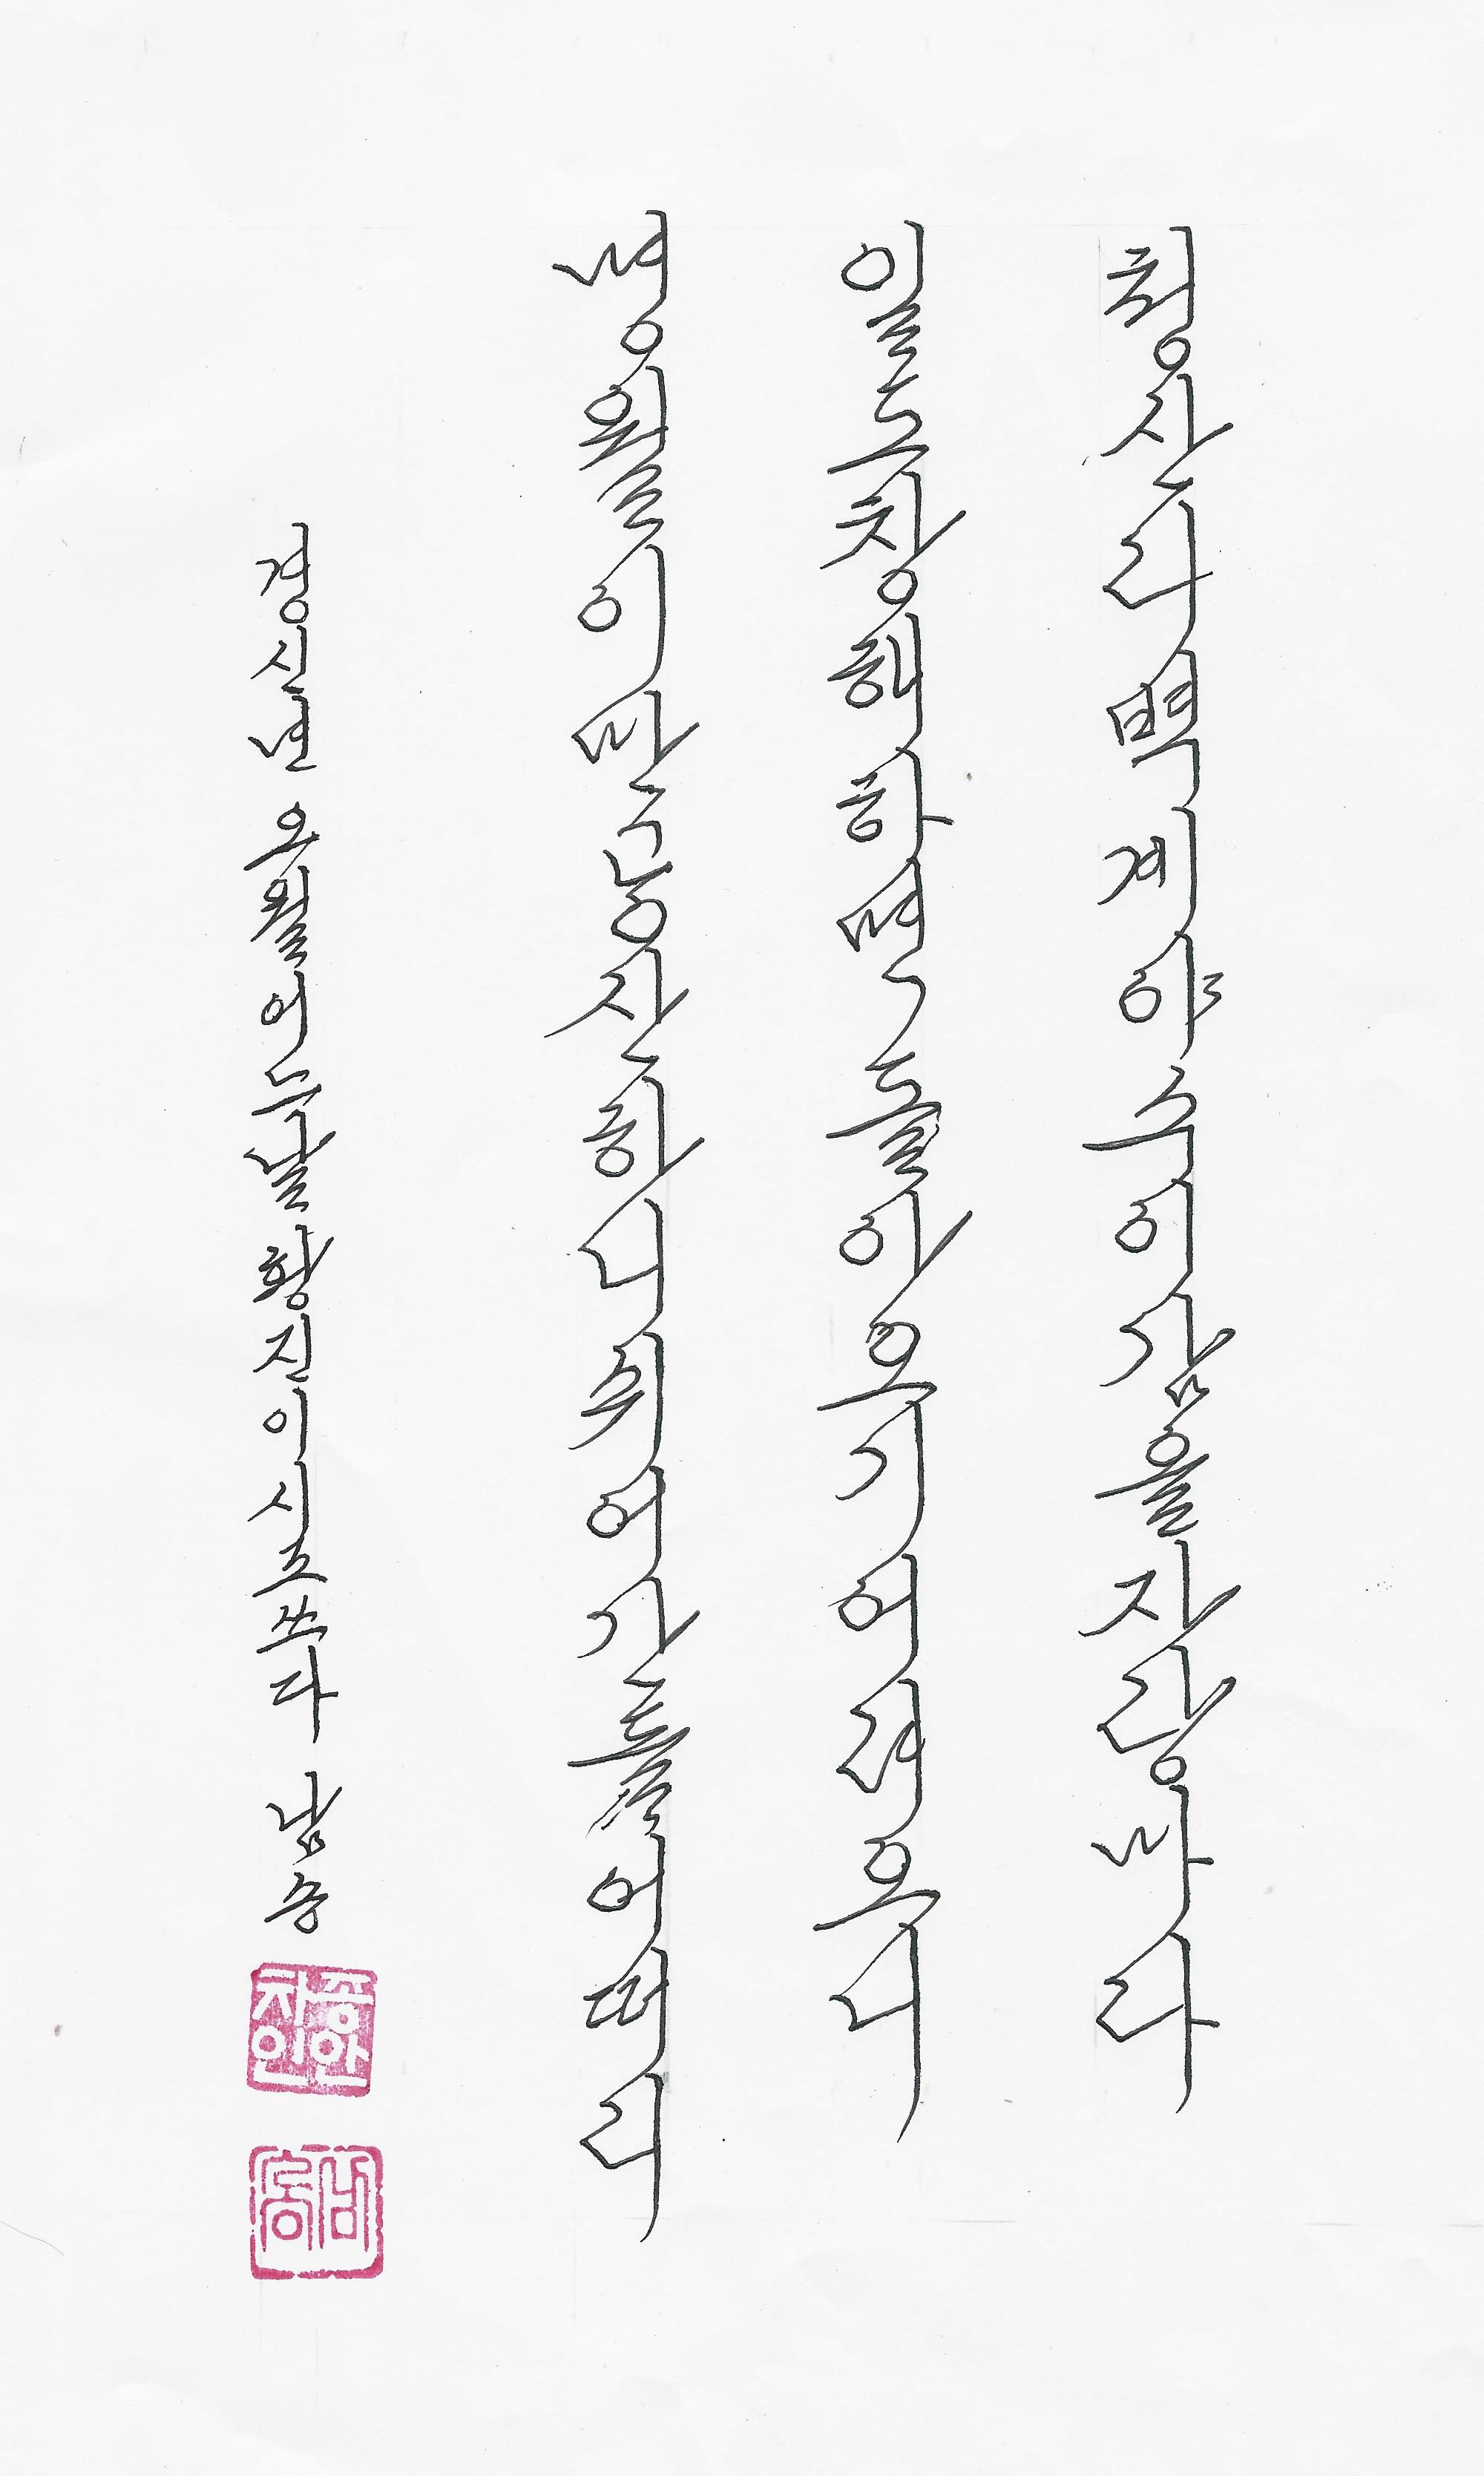 청산리벽계야수이감을자랑마라
일도창해하면돌아오기어려오니
명월이만공산하니쉬어간들어떠리
경신년 오월어느날 황진이시조쓰다 남송
종안
차인